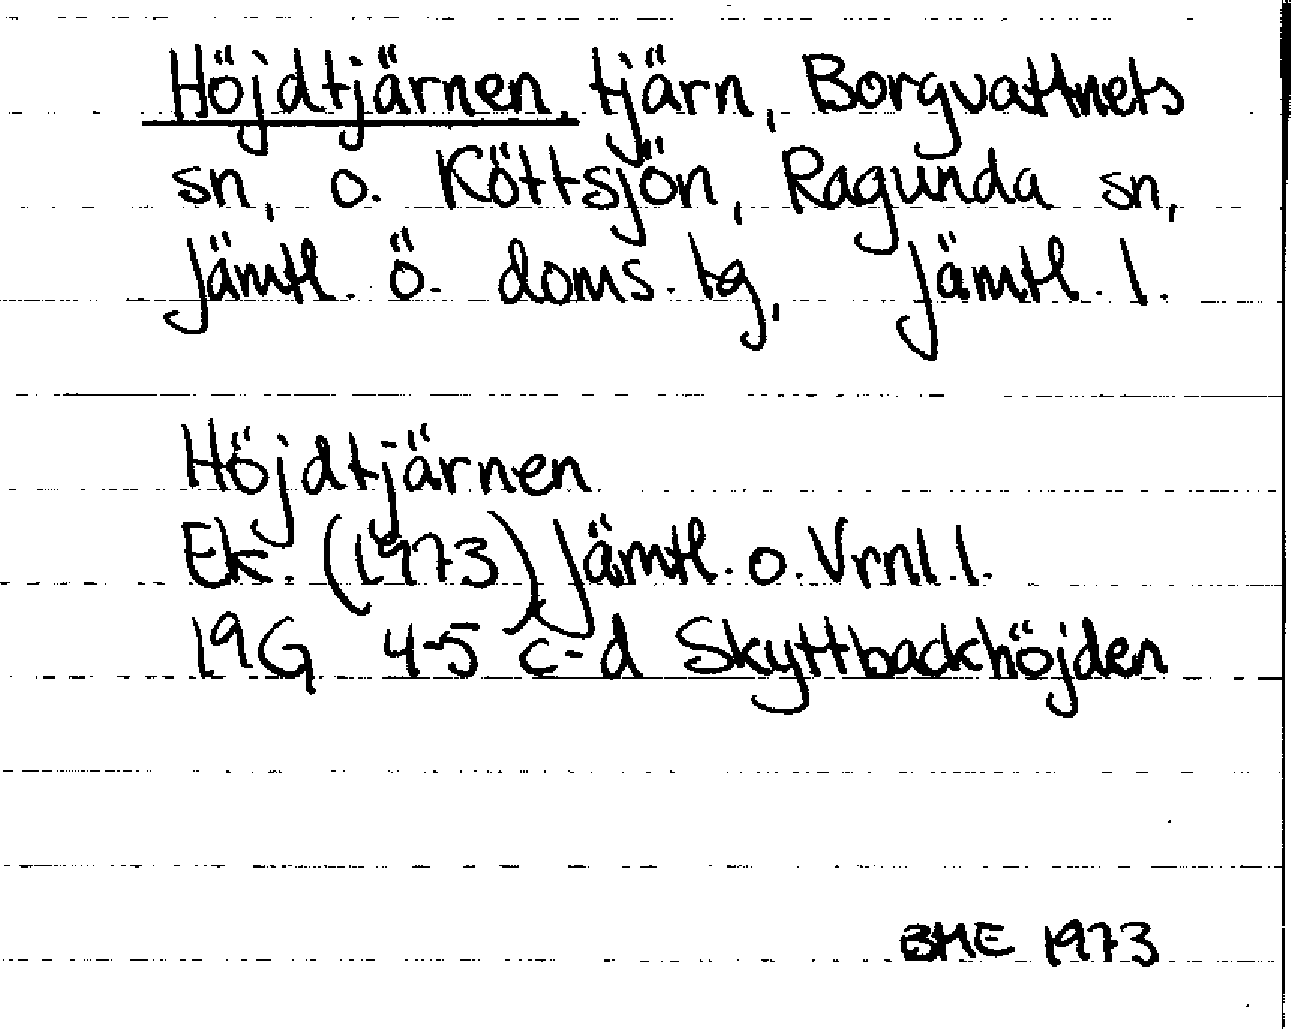 Höjdtjärnen, tjärn, Borgvattnets
sn, o. Köttsjön, Ragunda sn,
Jämtl. ö. doms. tg, Jämtl. l.
Höjdtjärnen
Ek. (1973) Jämtl. o. Vrnl. l.
19G 4-5 c-d Skyttbackhöjden
BME 1973